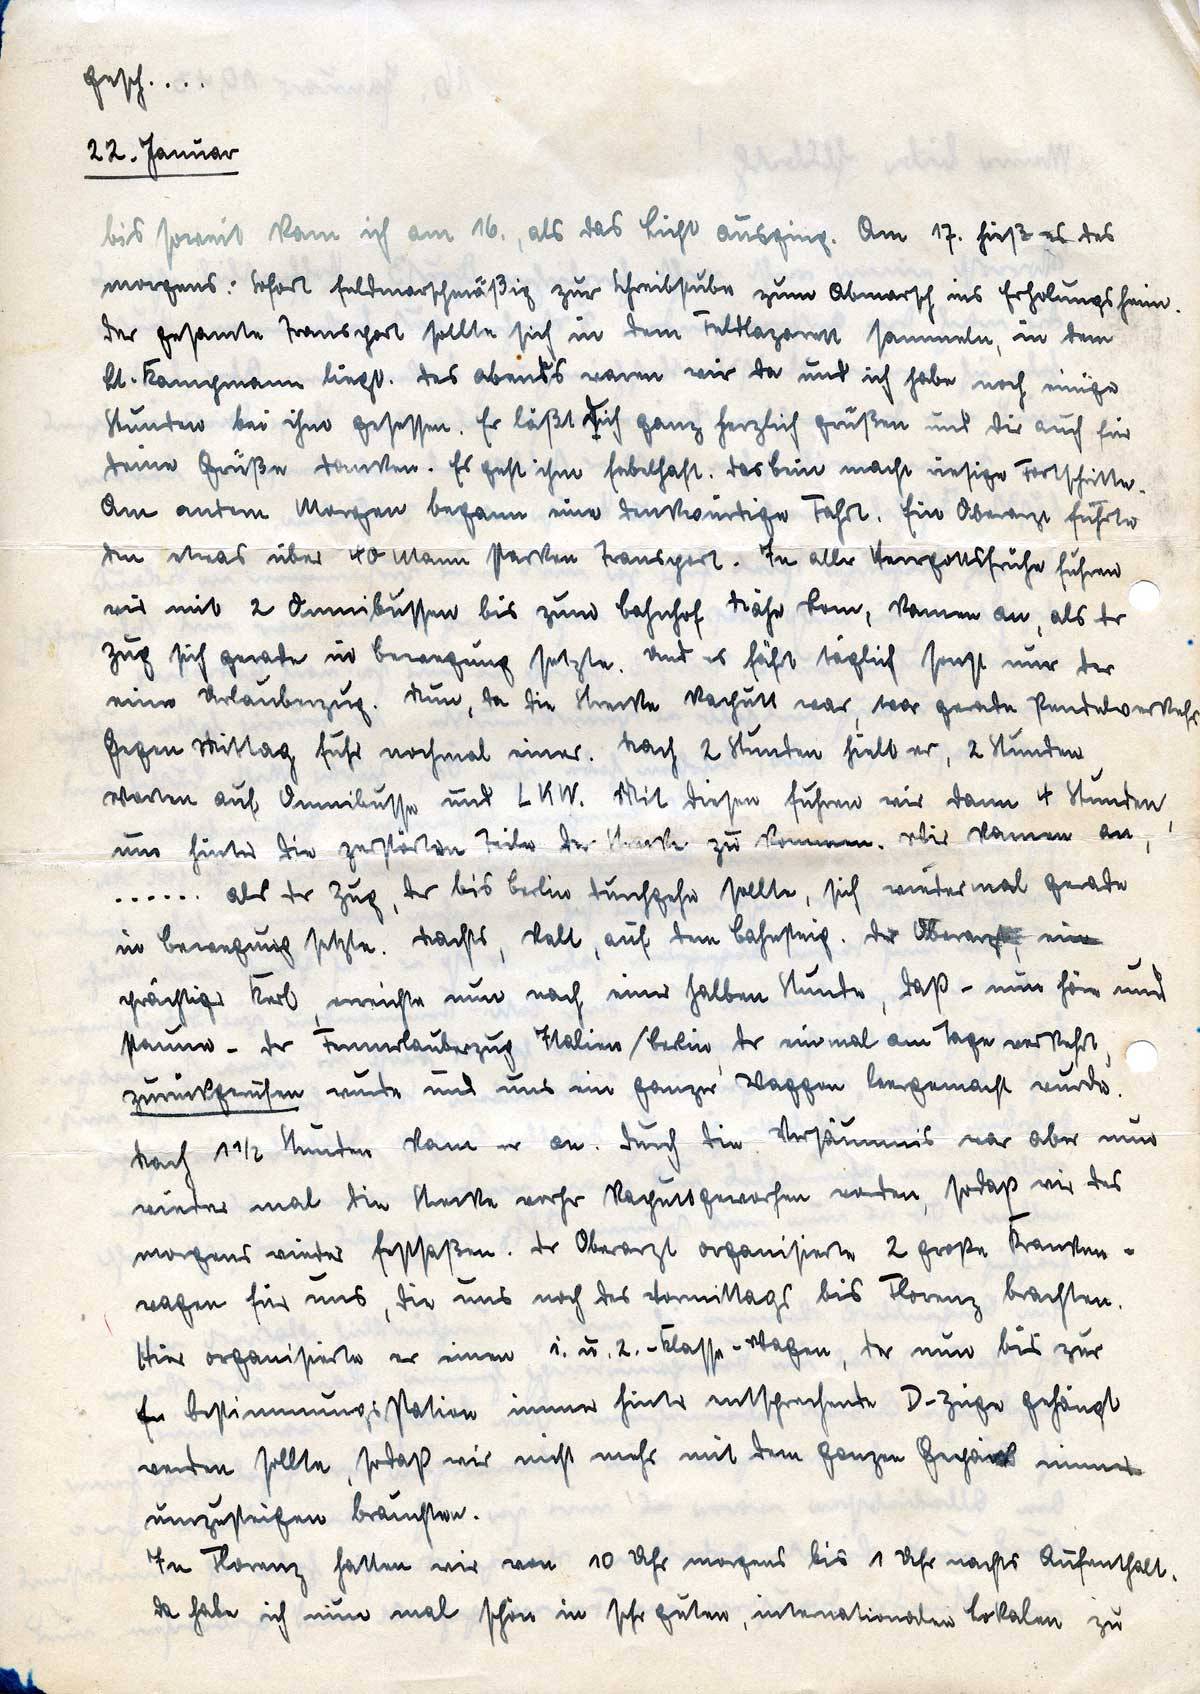 gesch....
22. Januar
bis soweit kam ich am 16., als das Licht ausging. Am 17. hieß es des
morgens: Sofort feldmarschmäßig zur Schreibstube zum Abmarsch ins Erholungsheim.
Der gesamte Transport sollte sich in dem Feldlazarett sammeln, in dem
Lt. Kampmann liegt. Des abends waren wir da und ich habe noch einige
Stunden bei ihm gesessen. Er läßt Dich ganz herzlich grüßen und dir auch für
deine Grüße danken. Es geht ihm fabelhaft. Das bein macht riesige Fortschritte.
Am andern Morgen begann eine denkwürdige Fahrt. Ein Oberarzt führte
den etwas über 40 Mann starken Transport. In aller Herrgottsfrühe fuhren
wir mit 2 Omnibussen bis zum bahnhof Nähe Rom, kamen an, als der
Zug sich gerade in bewegung setzte. Und es fährt täglich sonst nur der
eine Urlauberzug. Nun, da die Strecke kaputt war, war gerade Pendelverkehr.
Gegen Mittag fuhr nochmal einer. Nach 2 Stunden hielt er, 2 Stunden
warten auf Omnibusse und LKW. Mit diesen fuhren wir dann 4 Stunden,
um hinter die zerstörten Teile der Strecke zu kommen. Wir kamen an,
...... als der Zug, der bis berlin durchgehn sollte, sich wiedermal gerade
in bewegung setzte. Nachts, kalt, auf dem bahnsteig. Der Oberarzt, ein
prächtiger Kerl, erreichte nun nach einer halben Stunde, daß - nun höre und
staune - der Fronturlauberzug Italien/berlin, der einmal am Tage verkehrt,
zurückgerufen wurde und uns ein ganzer Waggon leergemacht wurde.
Nach 1 1/2 Stunden kam er an. Durch die Versäumnis war aber nun
wieder mal die Strecke vorher kaputtgeworfen worden, sodaß wir des
morgens wieder festsaßen. Der Oberarzt organisierte 2 große Kranken-
wagen für uns, die uns noch des Vormittags bis Florenz brachten.
Hier organisierte er einen 1. u. 2.-Klasse-Wagen, der nun bis zur
bestimmungsstation immer hinter entsprechende D-Züge gehängt
werden sollte, sodaß wir nicht mehr mit dem ganzen Gepäck immer
umzusteigen brauchten.
In Florenz hatten wir von 10 Uhr morgens bis 1 Uhr nachts Aufenthalt.
Da habe ich nun mal schön in sehr guten, internationalen Lokalen zu